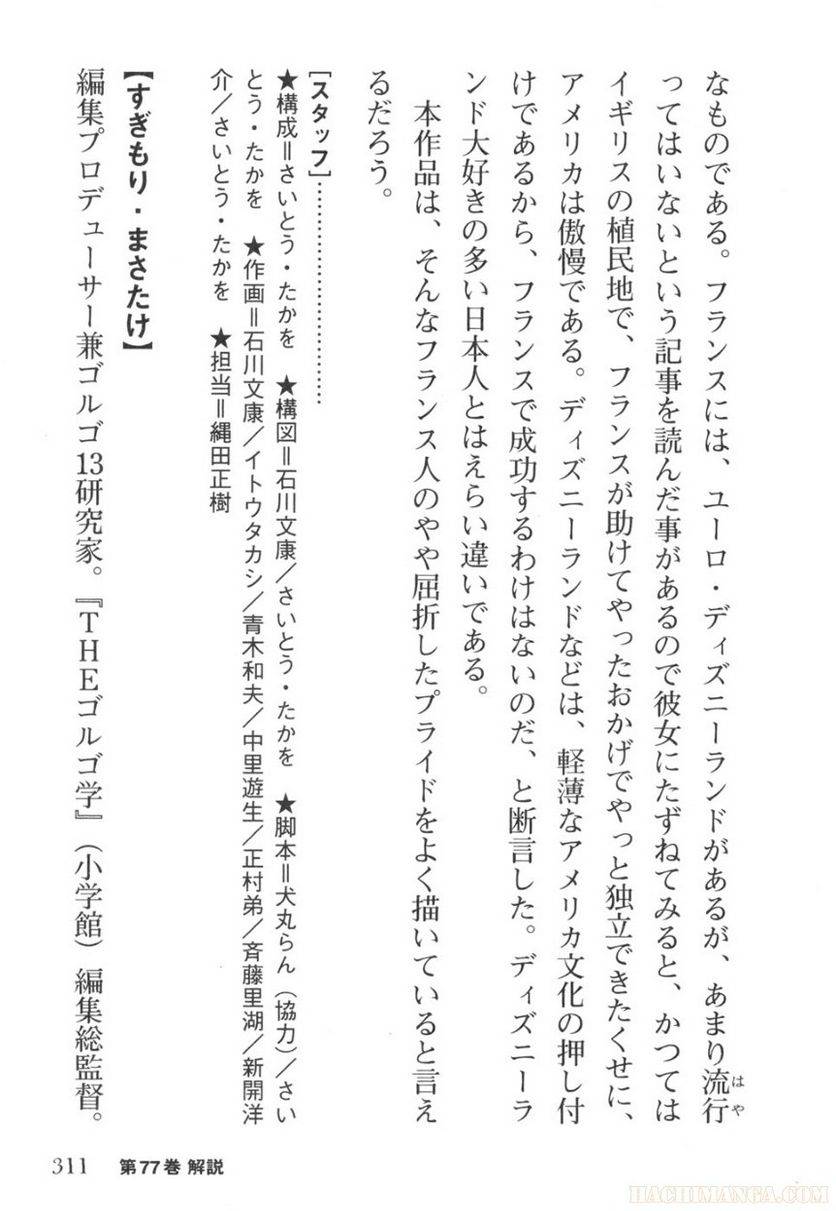 なものである。フランスには、ユーロ・ディズニーランドがあるが、あまり流行
はや
ってはいないという記事を読んだ事があるので彼女にたずねてみると、かつては
イギリスの植民地で、フランスが助けてやったおかげでやっと独立できたくせに、
アメリカは傲慢である。ディズニーランドなどは、軽薄なアメリカ文化の押し付
けであるから、フランスで成功するわけはないのだ、と断言した。ディズニーラ
ンド大好きの多い日本人とはえらい違いである。
本作品は、そんなフランス人のやや屈折したプライドをよく描いていると言え
るだろう。
[スタッフ]…………………………
★構成＝さいとう・たかを　★構図＝石川文康／さいとう・たかを　★脚本＝犬丸らん（協力）／さい
とう・たかを　★作画＝石川文康／イトウタカシ／青木和夫／中里遊生／正村弟／斉藤里湖／新開洋
介／さいとう・たかを　★担当＝縄田正樹
【すぎもり・まさたけ】
編集プロデューサー兼ゴルゴ13研究家。『THEゴルゴ学』（小学館）編集総監督。
311　第77巻 解説
HACHIMANGA.COM